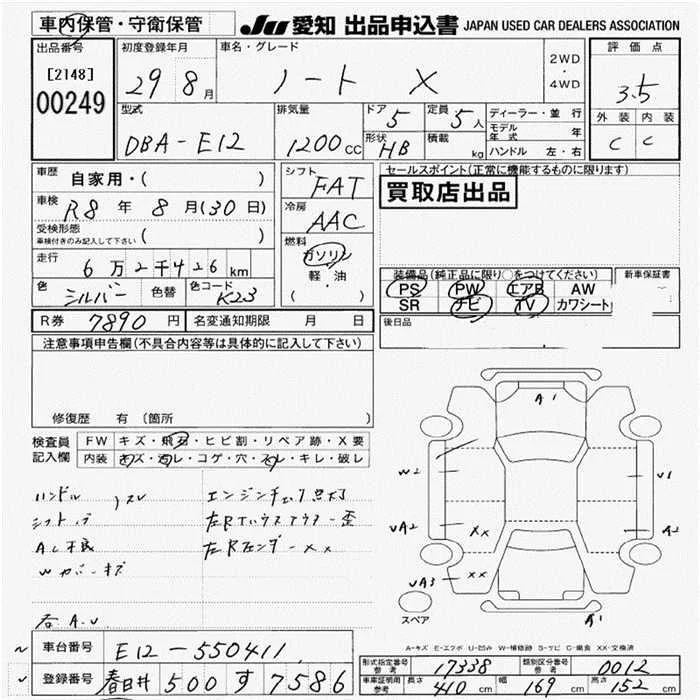 車内保管・守衛保管 JU 愛知 出品申込書 JAPAN USED CAR DEALERS ASSOCIATION
出品番号 初度登録年月 車名・グレード 評価点
[2148] 29 8月 ノート X 2WD・4WD 3.5
00249 型式 排気量 ドア 5 定員 5人 ディーラー・並行 外装 内装
DBA-E12 1200cc 形状 HB 積載 kg モデル年式 年 C C
ハンドル 左・右
車歴 自家用・( ) シフト FAT セールスポイント(正常に機能するものに限ります)
車検 R8年 8月(30日) 冷房 AAC 買取店出品
受検形態 車検付きのみ記入して下さい ( ) 燃料
走行 6万2千426km ガソリン 装備品(純正品に限り○をつけてください) 新車保証書
色 シルバー 色替 色コード K23 軽・油 ( ・ ) PS PW エアB AW
SR ナビ TV カワシート
R券 7890円 名変通知期限 月 日 後日品
注意事項申告欄(不具合内容等は具体的に記入して下さい)
修復歴 有 (箇所 )
検査員記入欄 FW キズ・飛石・ヒビ割・リペア跡・X要
内装 キズ・汚レ・コゲ・穴・スレ・キレ・破レ
ハンドル スレ エンジンチェック点灯
シフトノブ 左Rインサイドハウスアウター歪
左Rフェンダー XX
Wカバーキズ
A1
W2 U1
UA2 XX A2
UA3 XX A1
スペア
A-キズ E-エクボ U-凹み W-補修跡 S-サビ C-腐食 XX-交換済
車台番号 E12-550411
登録番号 春日井 500 す 7586
形式指定番号 参考 17338 類別区分番号 参考 0012
車庫証明用 参考 長さ 410cm 幅 169cm 高さ 152cm